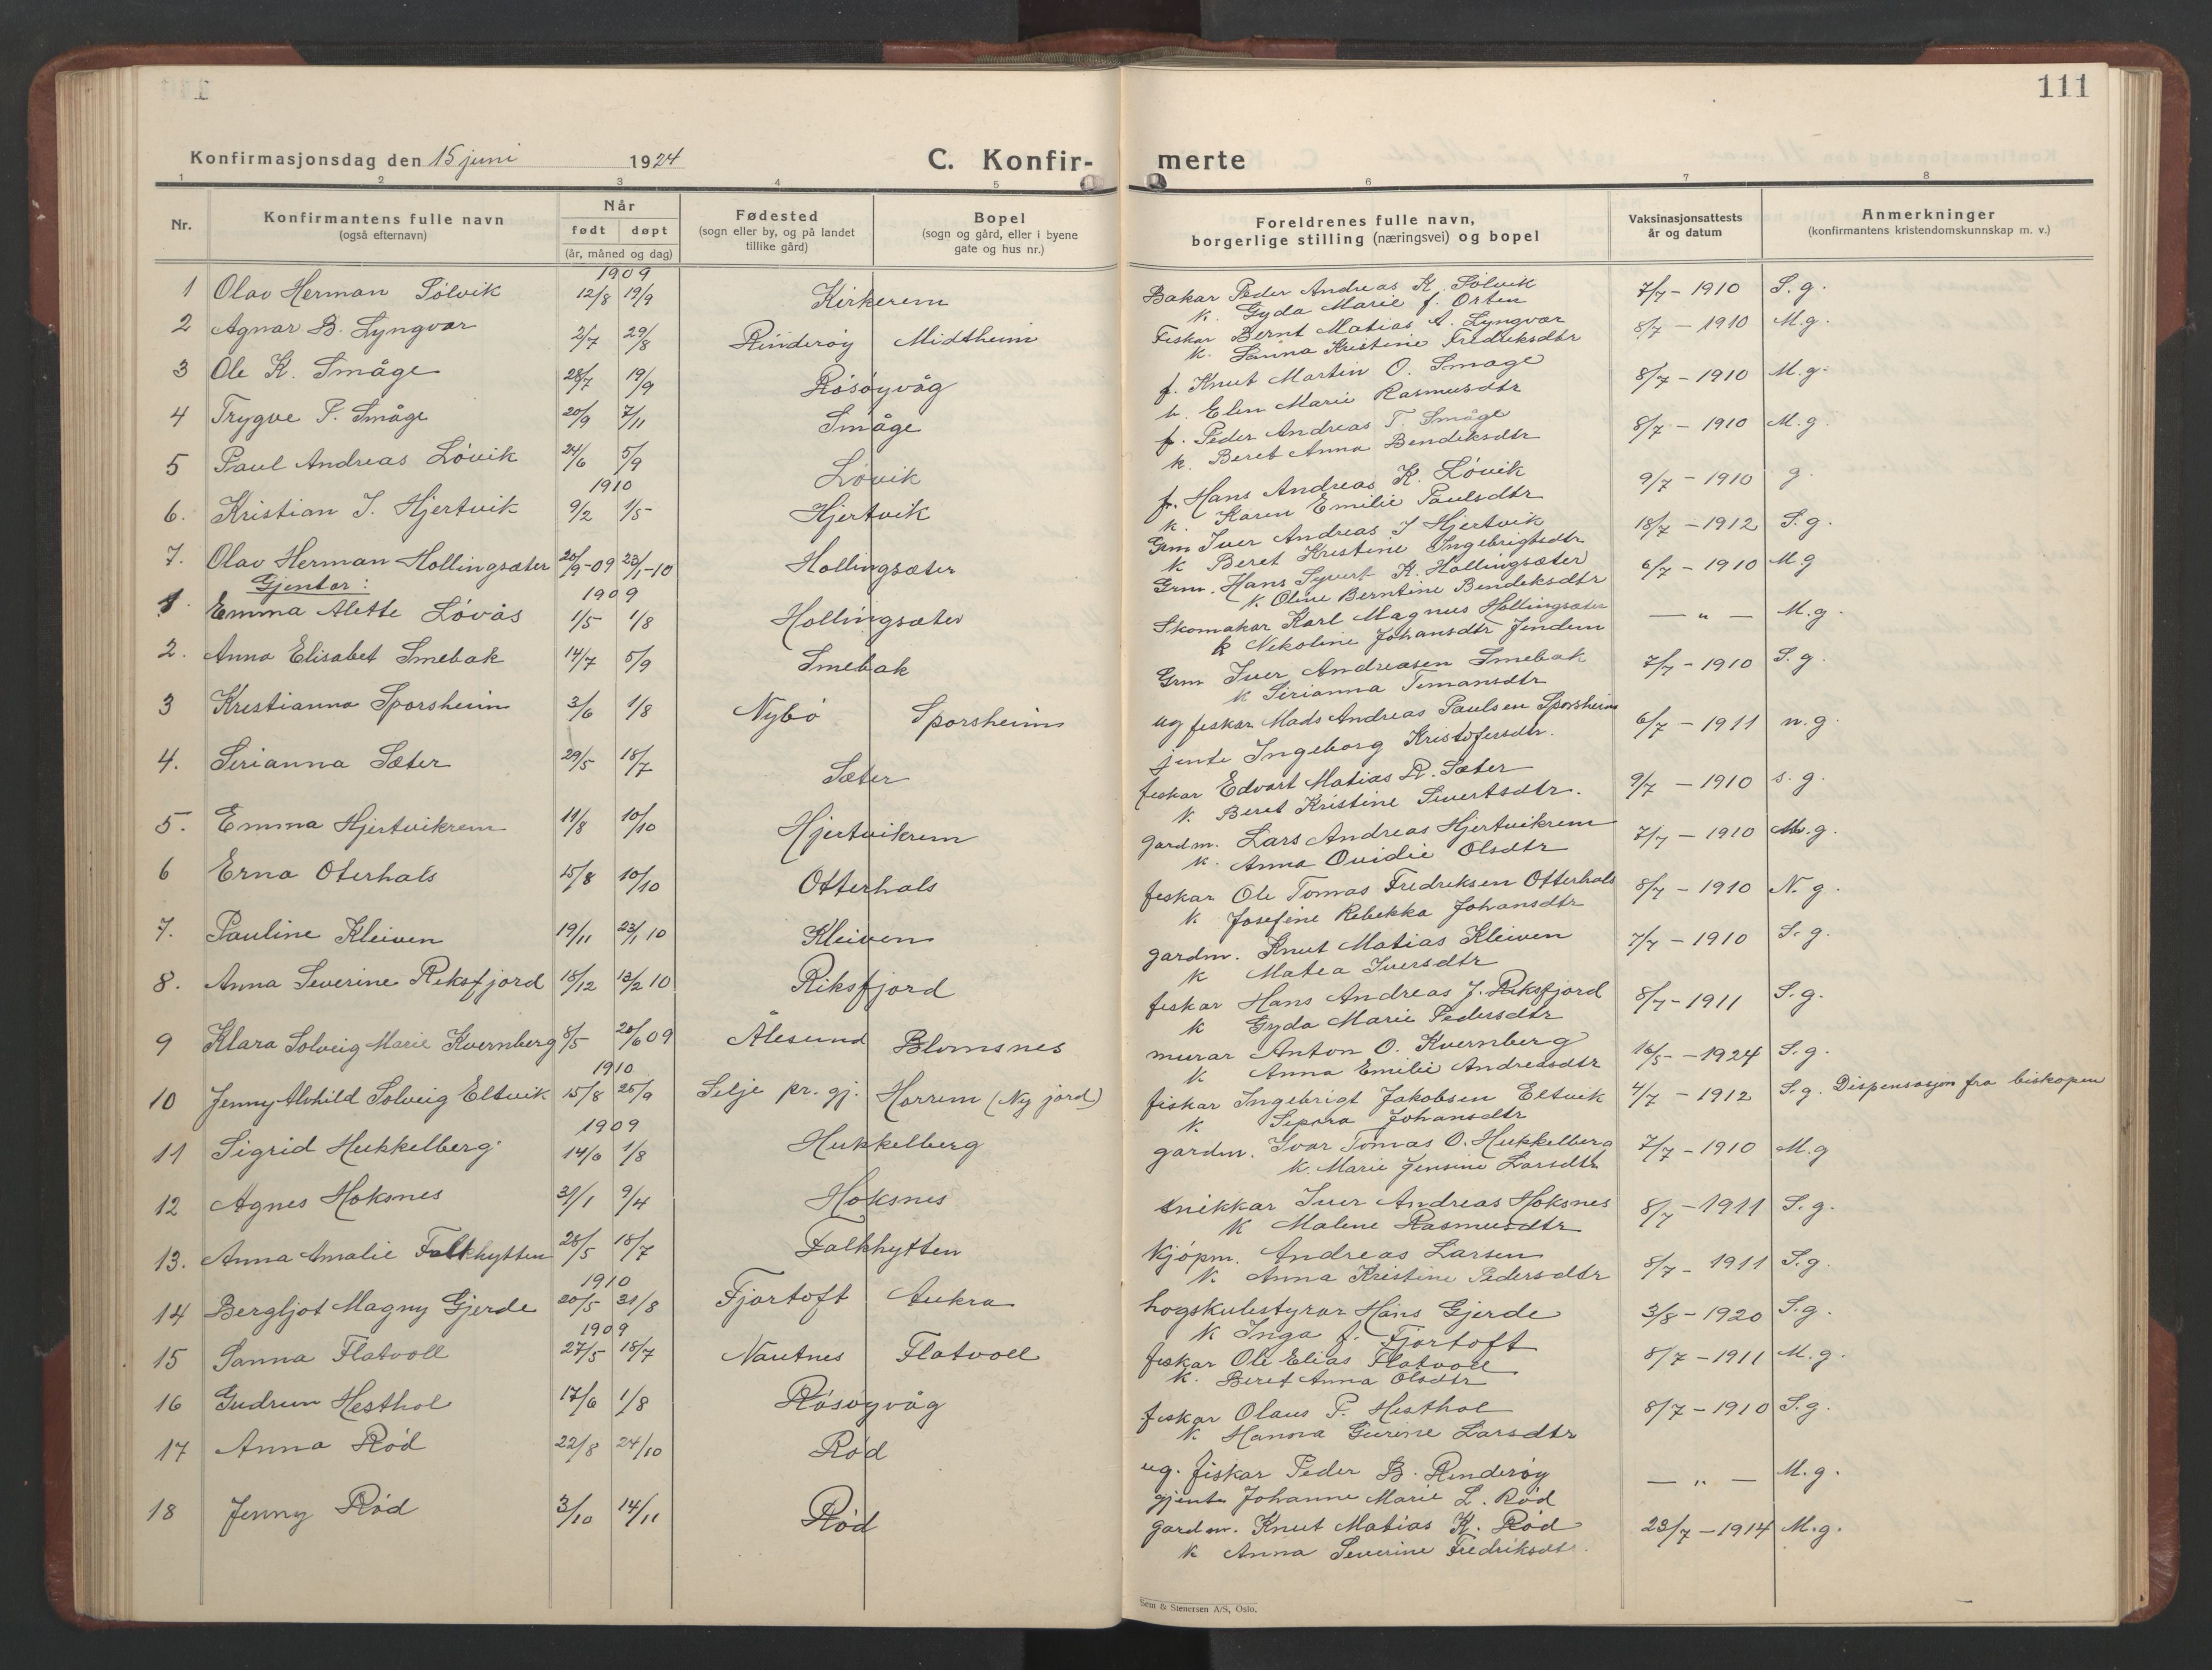 111
Konfirmasjonsdag den 15 juni 1924
C. Konfir- merte
1 2 3 4 5 6 7 8
Nr. Konfirmantens fulle navn (også efternavn) Når født døpt (år, måned og dag) Fødested (sogn eller by, og på landet tillike gård) Bopel (sogn og gård, eller i byene gate og hus nr.) Foreldrenes fulle navn, borgerlige stilling (næringsvei) og bopel Vaksinasjonsattests år og datum Anmerkninger (konfirmantens kristendomskunnskap m. v.)
1909
1 Olav Herman Sølvik 12/8 19/9 Kirkerem Bakar Peder Andreas K. Sølvik 7/7 - 1910 S. g.
k. Gyda Marie f. Orten
2 Agnar B. Lyngvær 2/7 29/8 Rinderøy Midtheim Fiskar Bernt Matias A. Lyngvær 8/7 - 1910 M.g.
k. Sanna Kristine Fredriksdtr
3 Ole K. Småge 28/7 19/9 Røsøyvåg f. Knut Marten O. Småge 8/7 - 1910 M.g.
k. Elen Marie Rasmusdtr
4 Trygve P. Småge 20/9 7/11 Småge f. Peder Andreas T. Småge 8/7 - 1910 M.g.
k. Beret Anna Bendiksdtr
5 Paul Andreas Løvik 24/6 5/9 Løvik f. Hans Andreas K. Løvik 9/7 - 1910 g.
k. Karen Emilie Paulsdtr
1910
6. Kristian I. Hjertvik 9/2 1/5 Hjertvik Grm Iver Andreas I Hjertvik 18/7 - 1912 S.g.
k Beret Kristine Ingebrigtsdtr
7. Olav Herman Hollingsæter 20/9-09 23/1-10 Hollingsæter Grm. Hans Syvert K. Hollingsæter 6/7 - 1910 M.g
k. Oline Berntine Bendiksdtr
Gjentor:
1909
1. Emma Alette Løvås 1/5 1/8 Hollingsæter Skomakar Karl Magnus Hollingsæter — " — M.g.
k Nekoline Johansdtr Jendem
2. Anna Elisabet Smebak 14/7 5/9 Smebak Grm Iver Andreasen Smebak 7/7 - 1910 S.g.
k Sirianna Temansdtr
3 Kristianna Sporsheim 3/6 1/8 Nybø Sporsheim ug fiskar Mads Andreas Paulsen Sporsheim 6/7 - 1911 n.g.
jente Ingeborg Kristofersdtr.
4. Sirianna Sæter 29/5 18/7 Sæter fiskar Edvart Matias R. Sæter 9/7 - 1910 s.g.
k. Beret Kristine Sivertsdtr.
5. Emma Hjertvikrem 11/8 10/10 Hjertvikrem gardm. Lars Andreas Hjertvikrem 7/7 - 1910 M.g.
k. Anna Ovidie Olsdtr
6 Erna Oterhals 15/8 10/10 Otterhals fiskar Ole Tomas Fredriksen Otterhals 8/7 - 1910 N.g.
k. Josefine Rebekka Johansdtr
7. Pauline Kleiven 19/11 23/1 10 Kleiven gardm. Knut Matias Kleiven 7/7 - 1910 S.g.
k Matea Iversdtr
8. Anna Severine Riksfjord 18/12 13/2 10 Riksfjord fiskar Hans Andreas J. Riksfjord 8/7 - 1911 S.g.
k Gyda Marie Pedersdtr
9 Klara Solveig Marie Kvernberg 8/5 20/6 09 Ålesund Blomsnes murar Anton O. Kvernberg 16/5 - 1924 S.g.
k Anna Emilie Andreasdtr
1910
10 Jenny Alvhild Solveig Eltvik 15/8 25/9 Selje pr. gj. Harrem (Ny jord) fiskar Ingebrigt Jakobsen Eltvik 4/7 - 1912 S.g. Dispensasjon fra biskopen
k. Sepora Johansdtr
1909
11 Sigrid Hukkelberg 14/6 1/8 Hukkelberg gardm. Ivar Tomas O. Hukkelberg 7/7 - 1910 M.g
k. Marie Jensine Larsdtr
12 Agnes Hoksnes 31/1 9/4 Hoksnes snikkar Iver Andreas Hoksnes 8/7 - 1911 S.g.
k Malene Rasmusdtr
13. Anna Amalie Falkhytten 28/5 18/7 Falkhytten Kjøpm. Andreas Larsen 8/7 - 1911 S.g.
k. Anna Kristine Pedersdtr
1910
14 Bergljot Magny Gjerde 20/5 31/8 Fjørtoft Aukra høgskulestyrar Hans Gjerde 3/8 - 1920 S.g.
k Inga f. Fjørtoft
1909
15 Sanna Flatvoll 27/5 18/7 Nautnes Flatvoll fiskar Ole Elias Flatvoll 8/7 - 1911 M.g.
k. Beret Anna Olsdtr
16 Gudrun Hesthol 17/6 1/8 Røsøyvåg fiskar Olaus P. Hesthol 8/7 - 1910 S.g.
k Hanna Gurine Larsdtr
17 Anna Rød 22/8 24/10 Rød ug. fiskar Peder B. Rinderøy — " — M.g.
gjente Johanne Marie L. Rød
18 Jenny Rød 3/10 14/11 Rød gardm. Knut Matias K. Rød 23/7 - 1914 M.g.
k Anna Severine Fredriksdtr.
Sem & Stenersen A/S, Oslo.